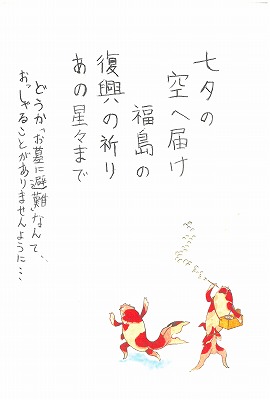 七夕の
空へ届け
福島の
復興の祈り
あの星々まで
どうか“お墓に避難”なんて、
おっしゃることがありませんように…